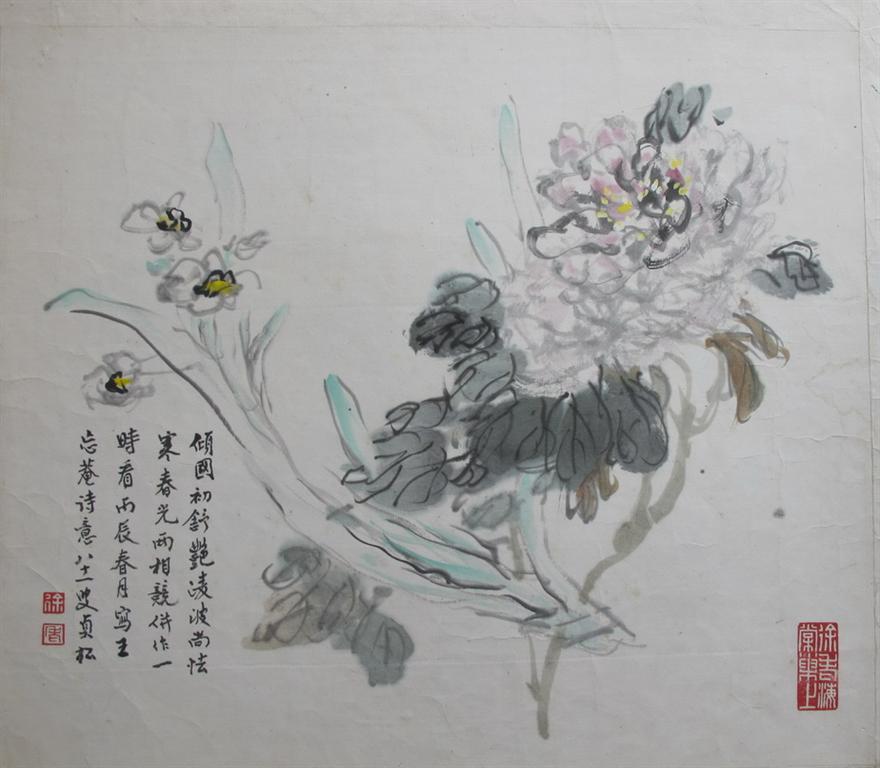 傾國初舒艷凌波尚怯
寒春光兩相競併作一
時看丙辰春月寫王
忘菴诗意八十一叟貞松
徐